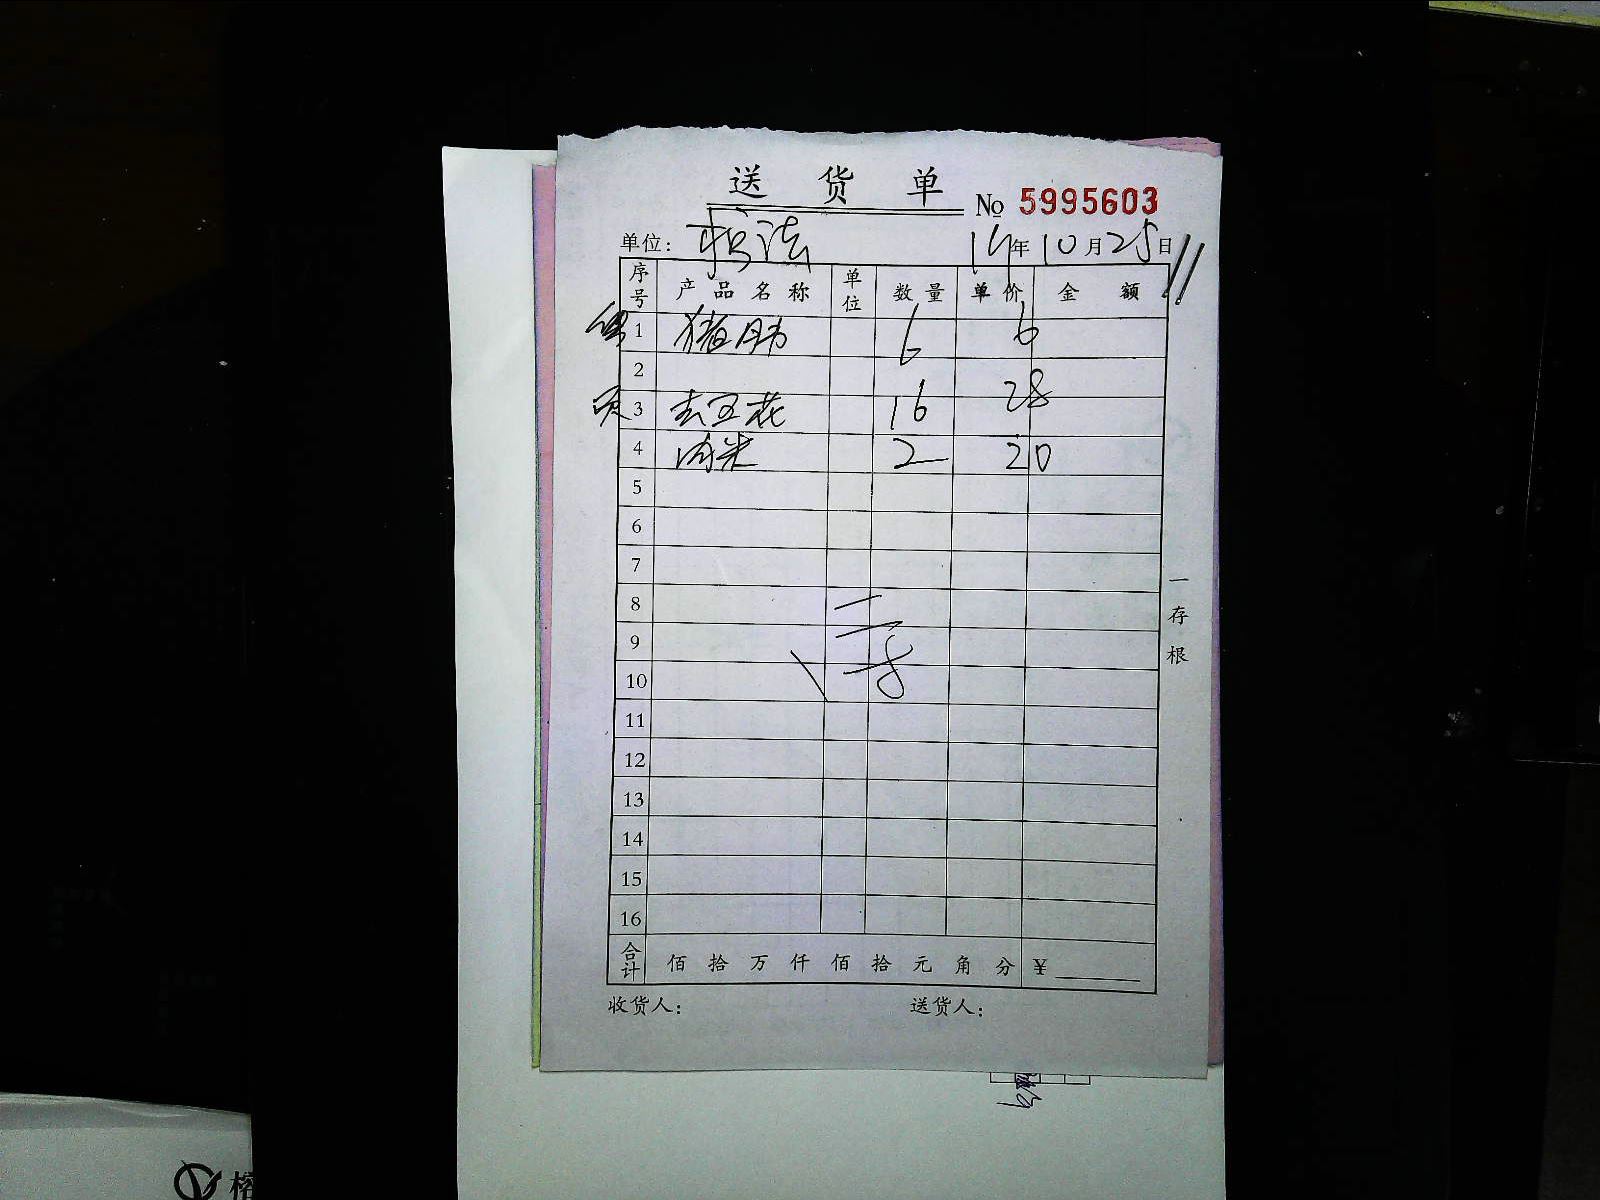 送货单
No 5995603
单位: 14年10月25日
序号 产品名称 单位 数量 单价 金额
1 猪肺 6 6
2
3 去五花 16 28
4 肉米 2 20
5
6
7
8
9
10
11
12
13
14
15
16
合计 佰拾万仟佰拾元角分 ¥
收货人: 送货人:
一存根